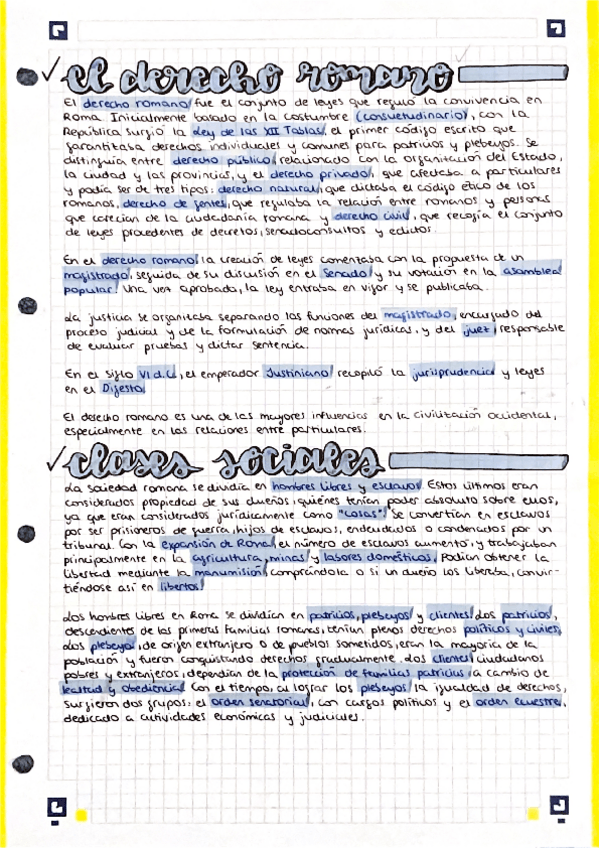 el derecho romano
El derecho romano fue el conjunto de leyes que reguló la convivencia en
Roma. Inicialmente basado en la costumbre (consuetudinario), con la
República surgió la Ley de las XII Tablas, el primer código escrito que
garantizaba derechos individuales y comunes para patricios y plebeyos. Se
distinguía entre derecho público, relacionado con la organización del Estado,
la ciudad y las provincias, y el derecho privado, que afectaba a particulares
y podía ser de tres tipos: derecho natural, que dictaba el código ético de los
romanos, derecho de gentes, que regulaba la relación entre romanos y personas
que carecían de la ciudadanía romana y derecho civil, que recogía el conjunto
de leyes procedentes de decretos, senadoconsultos y edictos.
En el derecho romano, la creación de leyes comenzaba con la propuesta de un
magistrado, seguida de su discusión en el Senado y su votación en la asamblea
popular. Una vez aprobada, la ley entraba en vigor y se publicaba.
La justicia se organizaba separando las funciones del magistrado, encargado del
proceso judicial y de la formulación de normas jurídicas, y del juez, responsable
de evaluar pruebas y dictar sentencia.
En el siglo VI d.C, el emperador Justiniano recopiló la jurisprudencia y leyes
en el Digesto.
El derecho romano es una de las mayores influencias en la civilización occidental,
especialmente en las relaciones entre particulares.
clases sociales
La sociedad romana se dividía en hombres libres y esclavos. Estos últimos eran
considerados propiedad de sus dueños, quienes tenían poder absoluto sobre ellos,
ya que eran considerados jurídicamente como "cosas". Se convertían en esclavos
por ser prisioneros de guerra, hijos de esclavos, endeudados o condenados por un
tribunal. Con la expansión de Roma, el número de esclavos aumentó, y trabajaban
principalmente en la agricultura, minas y labores domésticas. Podían obtener la
libertad mediante la manumisión, comprándola o si un dueño los liberaba, convir-
tiéndose así en libertos.
Los hombres libres en Roma se dividían en patricios, plebeyos y clientes. Los patricios,
descendientes de las primeras familias romanas, tenían plenos derechos políticos y civiles.
Los plebeyos, de origen extranjero o de pueblos sometidos, eran la mayoría de la
población y fueron conquistando derechos gradualmente. Los clientes, ciudadanos
pobres y extranjeros, dependían de la protección de familias patricias a cambio de
lealtad y obediencia. Con el tiempo, al lograr los plebeyos la igualdad de derechos,
surgieron dos grupos: el orden senatorial, con cargos políticos y el orden ecuestre,
dedicado a actividades económicas y judiciales.